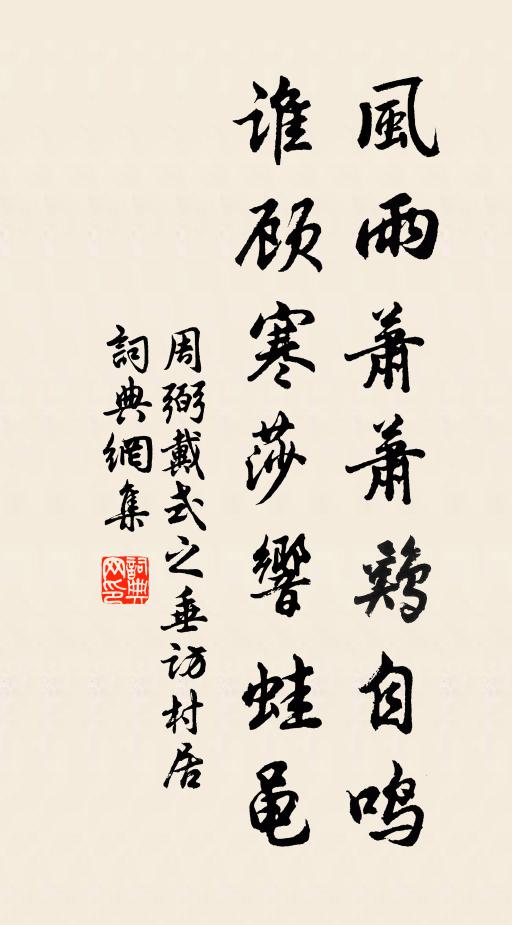 風雨蕭蕭鷄自鳴
誰顾寒莎響蛙黽
周弼戴式之垂访村居
詞典網集
詞典网印